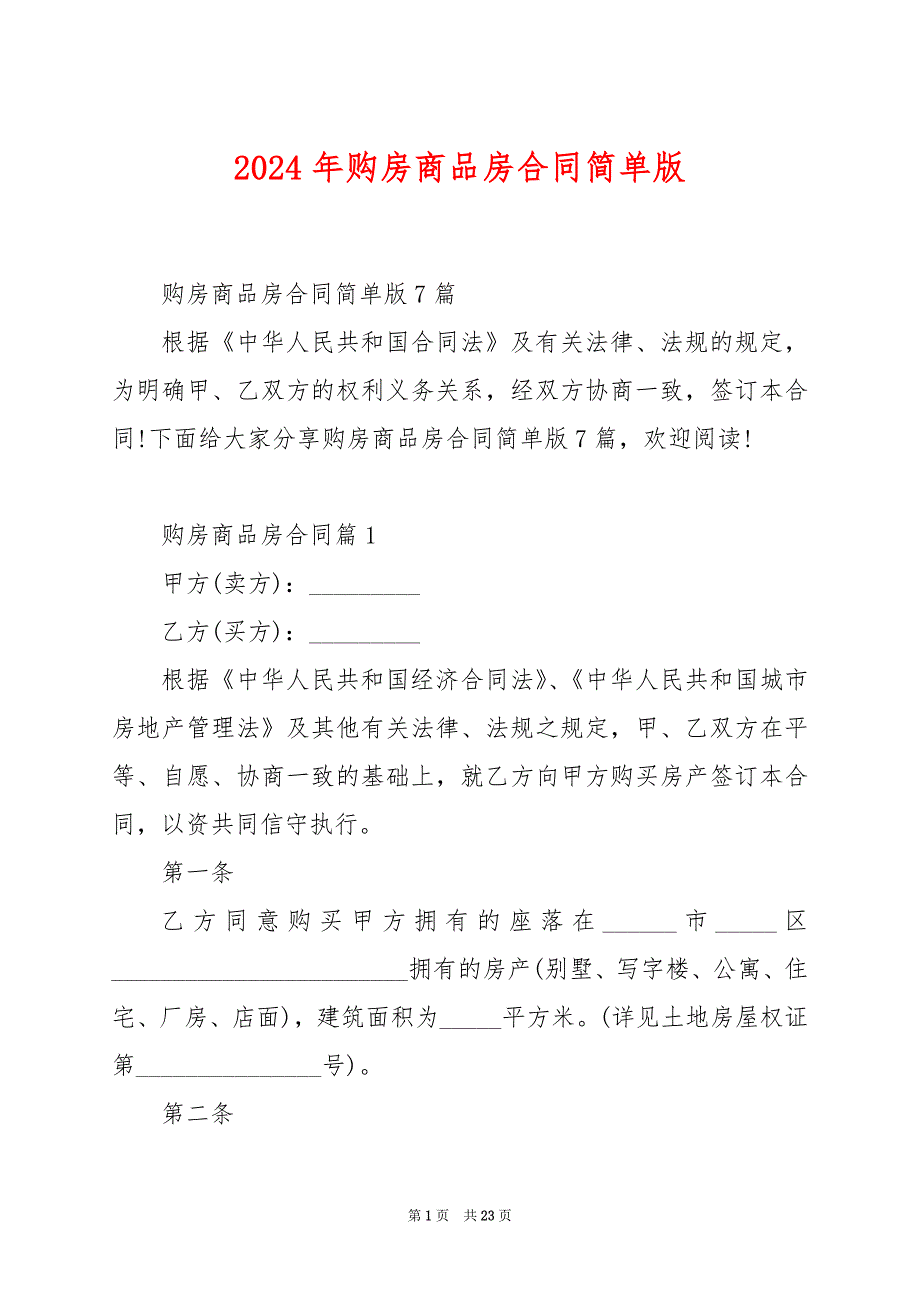 2024 年购房商品房合同简单版
购房商品房合同简单版 7 篇
根据《中华人民共和国合同法》及有关法律、法规的规定，
为明确甲、乙双方的权利义务关系，经双方协商一致，签订本合
同!下面给大家分享购房商品房合同简单版 7 篇，欢迎阅读!
购房商品房合同篇 1
甲方(卖方)：_________
乙方(买方)：_________
根据《中华人民共和国经济合同法》、《中华人民共和国城市
房地产管理法》及其他有关法律、法规之规定，甲、乙双方在平
等、自愿、协商一致的基础上，就乙方向甲方购买房产签订本合
同，以资共同信守执行。
第一条
乙方同意购买甲方拥有的座落在______市_____区
________________________拥有的房产(别墅、写字楼、公寓、住
宅、厂房、店面)，建筑面积为_____平方米。(详见土地房屋权证
第_______________号)。
第二条
第 1 页 共 23 页